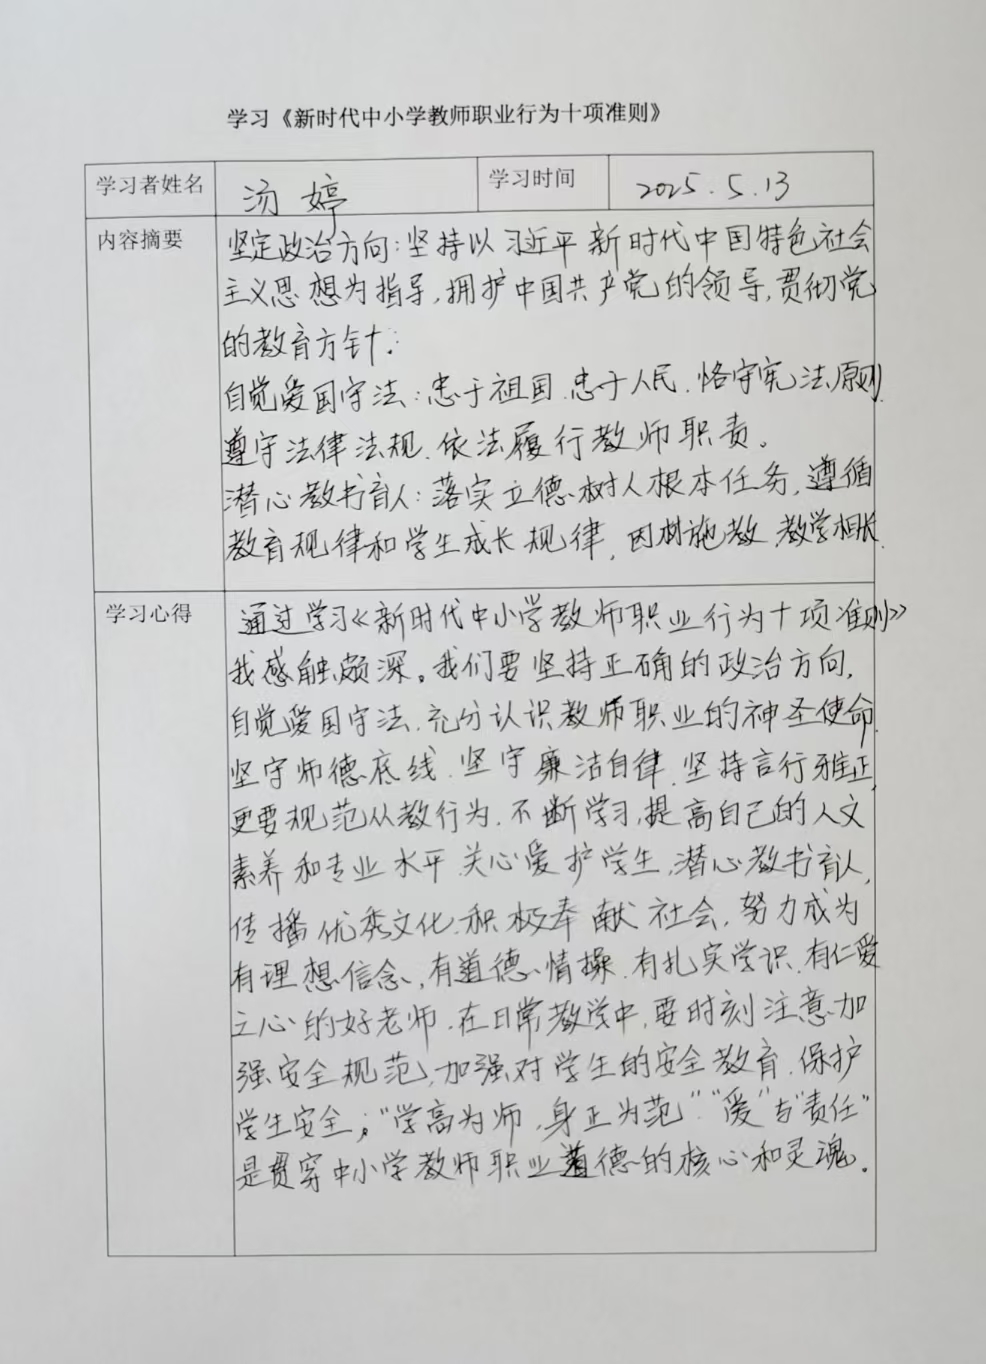 学习《新时代中小学教师职业行为十项准则》
学习者姓名 汤婷 学习时间 2025.5.13
内容摘要
坚定政治方向:坚持以习近平新时代中国特色社会
主义思想为指导,拥护中国共产党的领导,贯彻党
的教育方针.
自觉爱国守法:忠于祖国.忠于人民.恪守宪法原则.
遵守法律法规.依法履行教师职责。
潜心教书育人:落实立德树人根本任务,遵循
教育规律和学生成长规律,因材施教.教学相长.
学习心得
通过学习《新时代中小学教师职业行为十项准则》
我感触颇深。我们要坚持正确的政治方向,
自觉爱国守法.充分认识教师职业的神圣使命.
坚守师德底线.坚守廉洁自律.坚持言行雅正,
更要规范从教行为.不断学习,提高自己的人文
素养和专业水平.关心爱护学生,潜心教书育人,
传播优秀文化.积极奉献社会.努力成为
有理想信念,有道德情操.有扎实学识.有仁爱
之心的好老师.在日常教学中,要时刻注意加
强安全规范,加强对学生的安全教育.保护
学生安全;"学高为师,身正为范"."爱"与"责任"
是贯穿中小学教师职业道德的核心和灵魂。